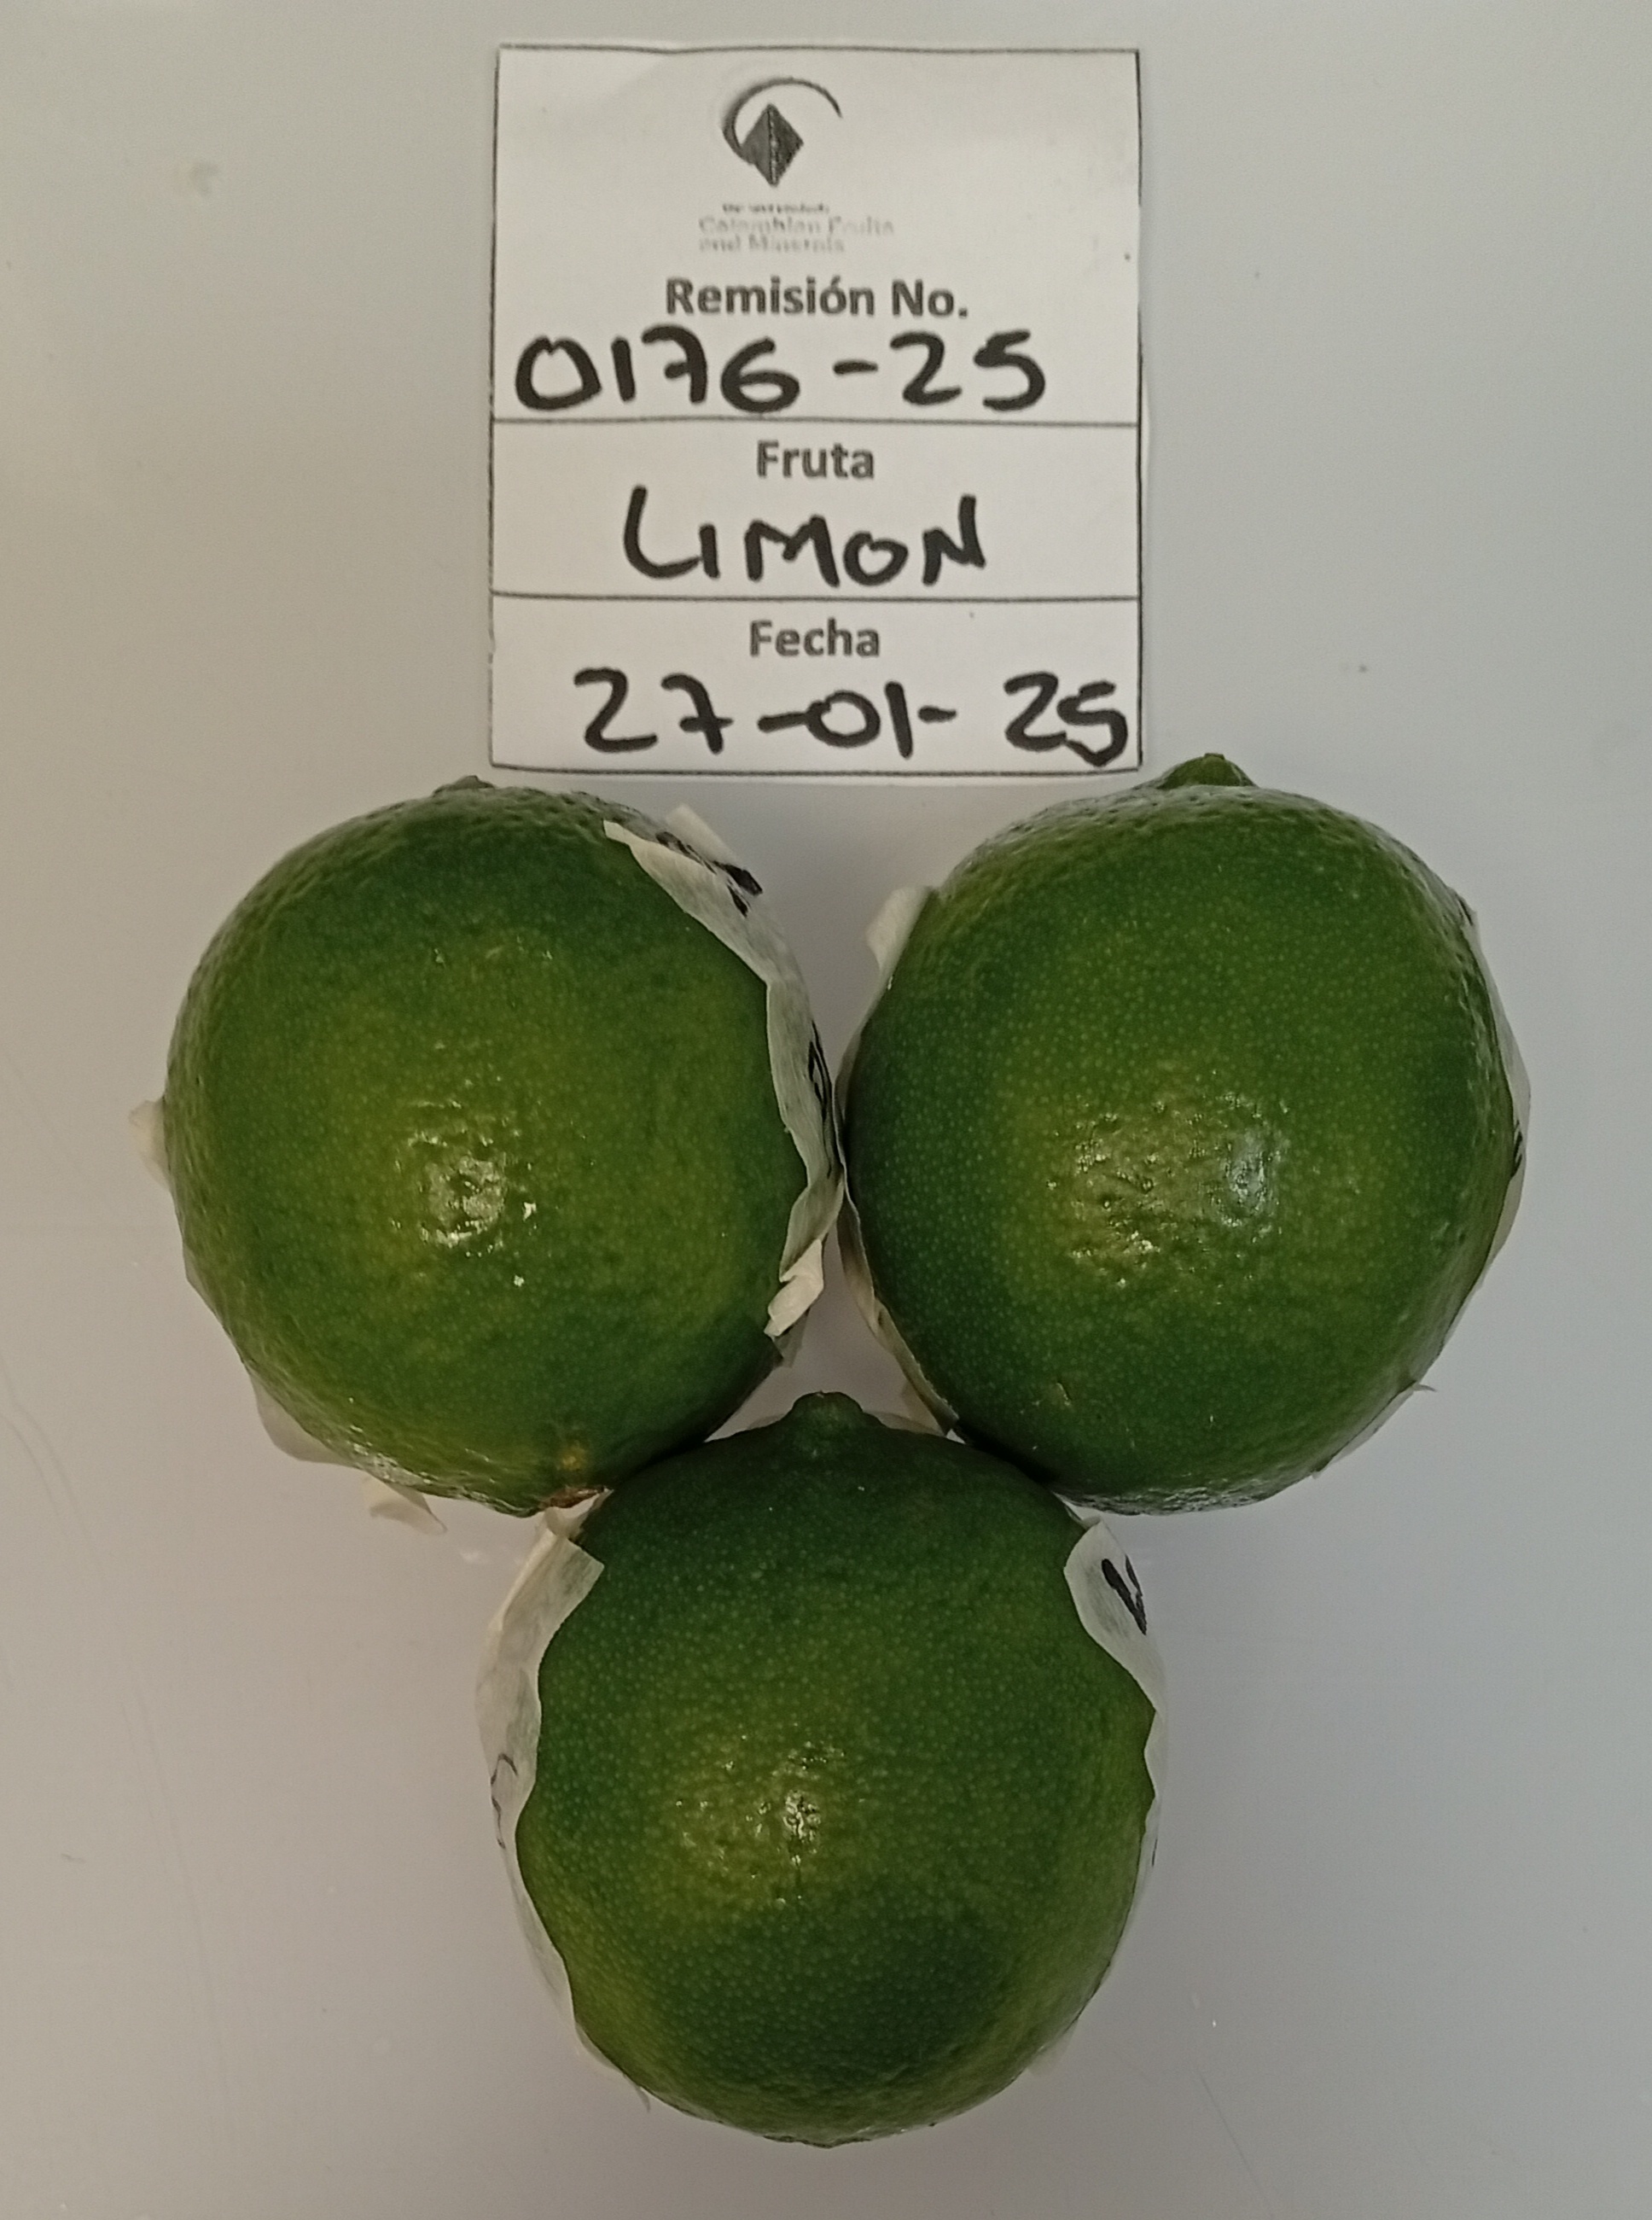 Colombian Fruits
and Minerals
Remisión No.
0176-25
Fruta
LIMON
Fecha
27-01-25